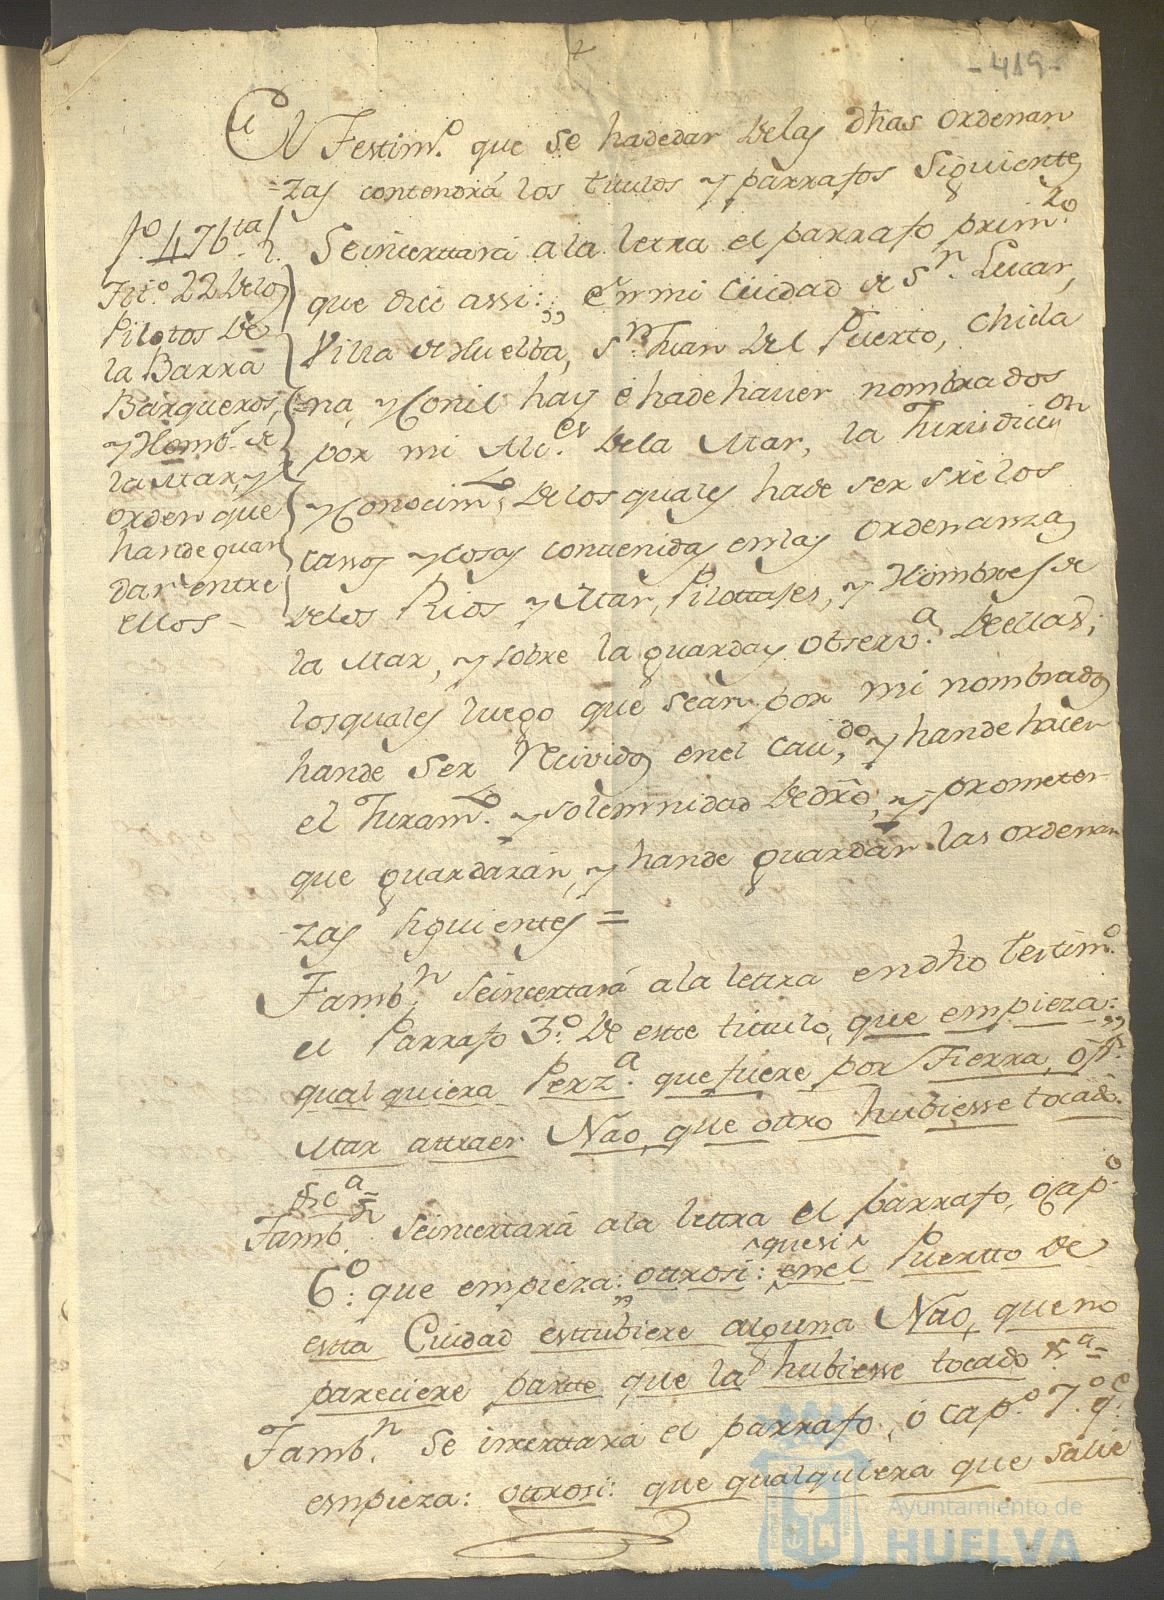 -419-
El Testim.º que se hadedar Delas dhas ordenan
=zas contendrá los titulos y parrafos siguientes
fº 476 ta
Tit.º 22 Delos
Pilotos De
la Barra
Barqueros,
y Homb.s de
la Mar, y
orden que
hande guar
dar entre
ellos -
Seincerttará a la letra el parrafo prim.ro
que dice assi: ,, En mi Ciudad de S.n Lucar,
Villa de Huelba, S.n Juan Del Puerto, Chicla
=na, y Conil hay é hade haver nombrados
por mi Alc.es Dela Mar, la Jurisdicion
y Conocim.to Delos quales hade ser sre los
casos y cosas contenidas enlas ordenanzas
Delos Rios y Mar, Pilottajes, y Hombres de
la Mar, y sobre la guarda y observ.a Deellas;
losquales luego que sean por mi nombrados
hande ser Recividos enel Cavi.do, y hande hacer
el Juram.to y solemnidad Dedro, y prometer
que guardarán, y hande guardar las ordenan
zas siguientes =
Tamb.n seincertará ala letra endho testim.º
el Parrafo 3.º De este titulo, que empieza: ,,
qualquiera Perz.a que fuere por Tierra, ó p.r
Mar attraer Nao, que otro hubiesse tocado.
&c.a =
Tamb.n seincertará ala lettra el parrafo, ó cap.º
6.º que empieza: ,, ottrosi: ^que si^ enel Puertto De
esta Ciudad esttubiere alguna Nao, que no
pareciere parte que la hubiesse tocado &.a =
Tamb.n se incerttará el parrafo, ó cap.º 7.º q.e
empieza: ottrosi: que qualquiera que salie
Ayuntamiento de
HUELVA